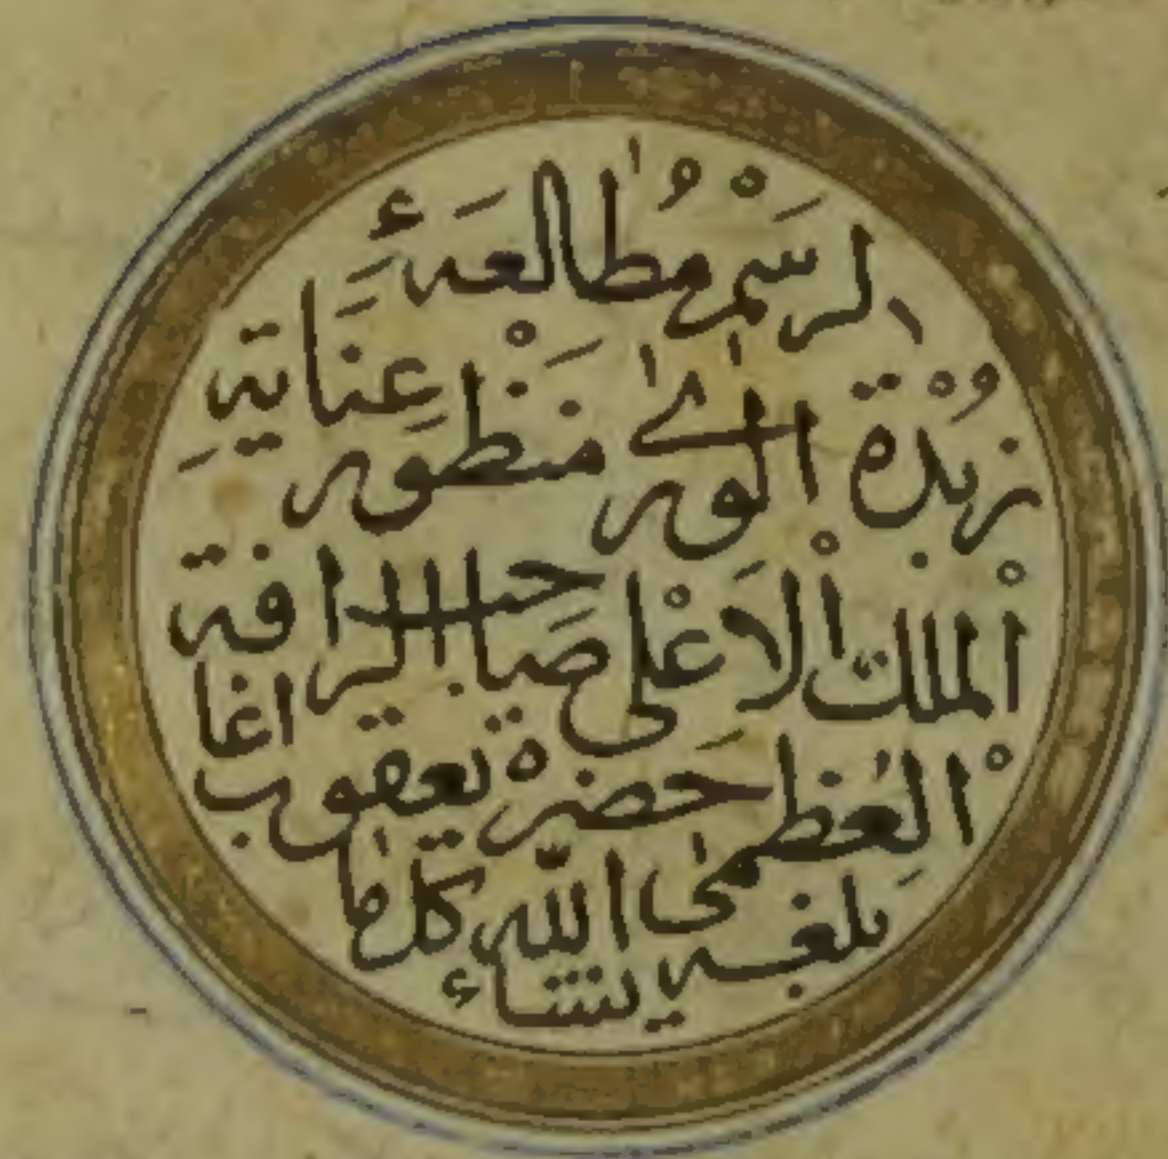 لرسم مُطالعهٔ عناية
زُبْدة الورىٰ منظور
الْملك الْاَعْلى صاحب الرافة
الْعُظمىٰ حضرة يعقوب اغا
بلغه الله كل ما
يشاء